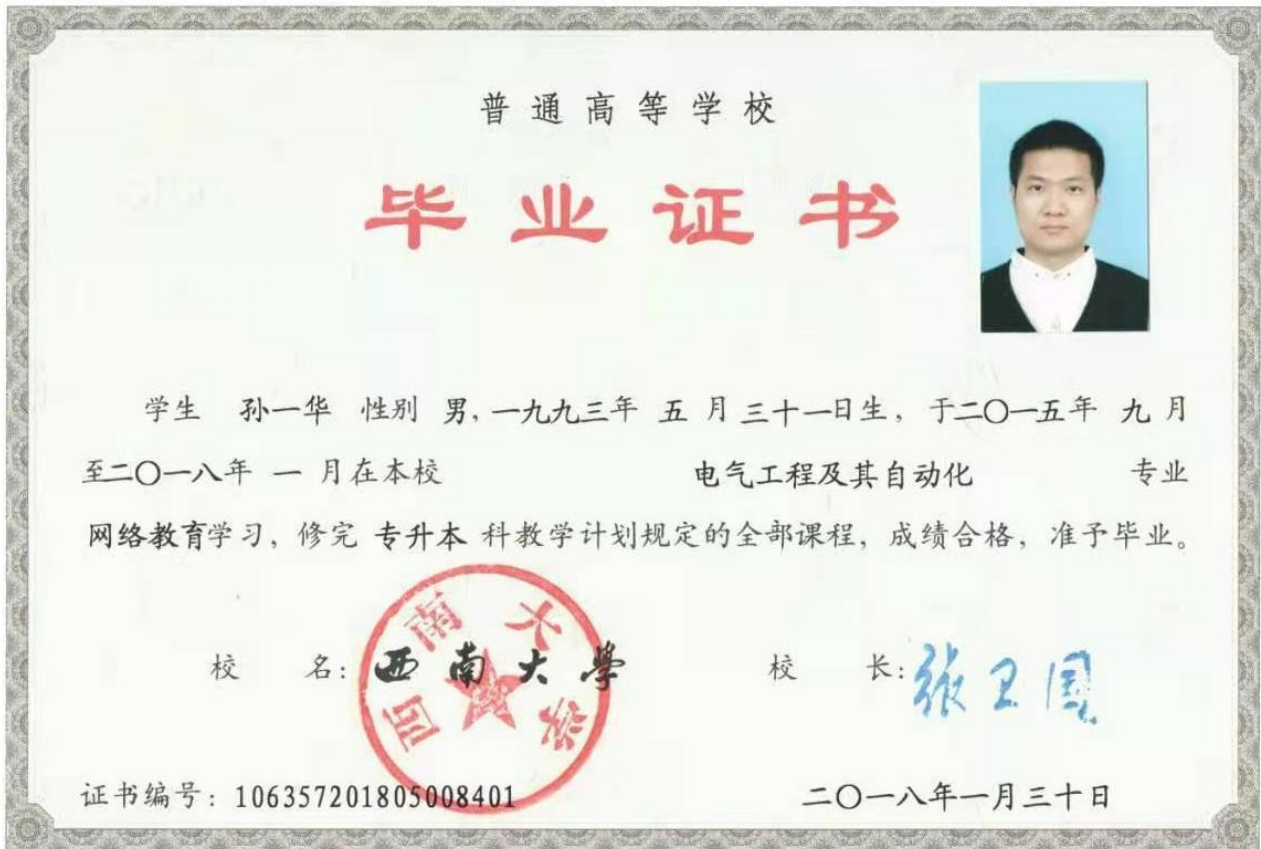 普通高等学校
毕业证书
学生 孙一华 性别 男, 一九九三年 五 月 三十一日生, 于二〇一五年 九 月
至二〇一八年 一 月在本校 电气工程及其自动化 专业
网络教育学习, 修完 专升本 科教学计划规定的全部课程, 成绩合格, 准予毕业。
西南大学
校 名: 西南大學 校 长: 张卫国
证书编号: 106357201805008401 二〇一八年一月三十日